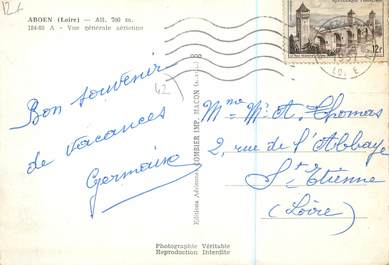 ABOEN (Loire) — Alt. 700 m.
184-60 A - Vue générale aérienne
12f
LOIRE
Bon souvenir
de vacances
Germaine
Editions Aériennes COMBIER IMP. MACON
Mme Mr A. Thomas
2, rue de l'Abbaye
St Etienne
(Loire)
Photographie Véritable
Reproduction Interdite